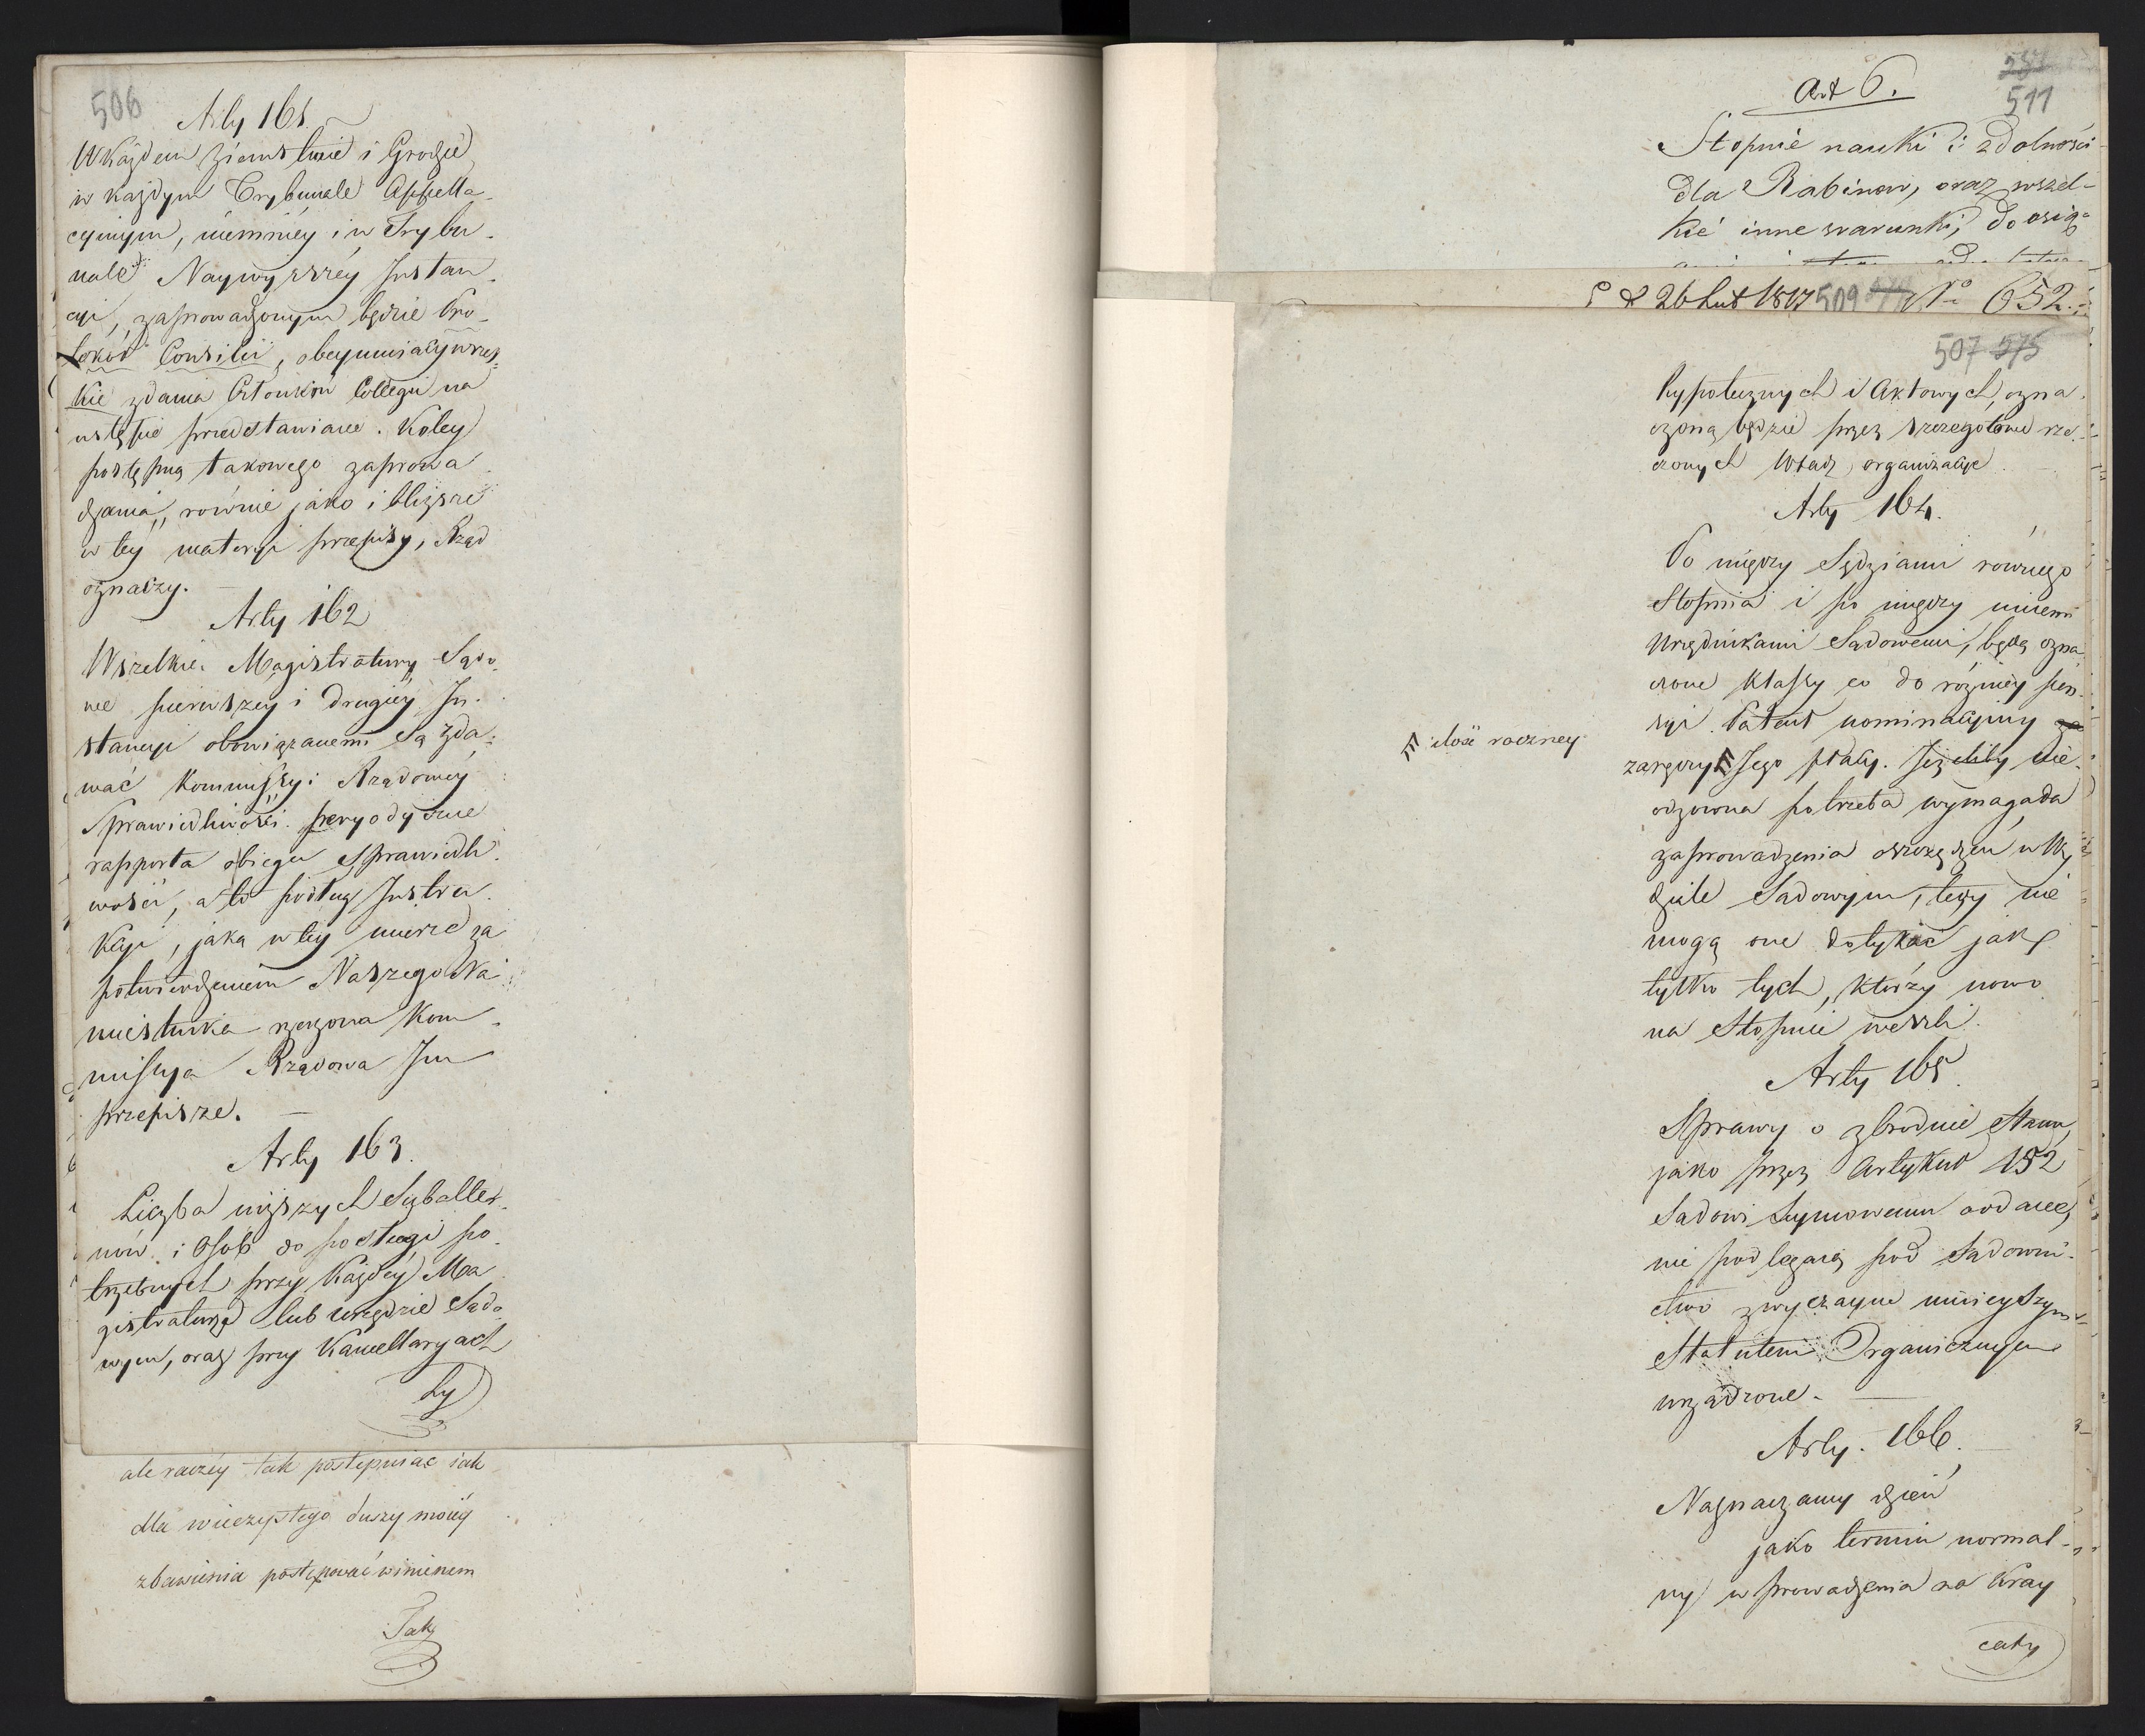 506
Arty 161
W Każdem Ziemstwie i Grodzie
w każdym Trybunale Appella-
cyinym, niemniey i w Trybu-
nale Naywyższey Instan-
cyi, zaprowadzonym będzie Pro-
tokół Consilii, obeymuiący wszel-
kie zdania Członków Collegii na
ustępie przedstawiane. Koley
postępną takowego zaprowa-
dzania, równie jako i bliższe
w tey materyi przepisy, Rząd
oznaczy.
Arty 162
Wszelkie Magistratury Sądo-
we pierwszey i drugiey In-
stancyi obowiązanemi są zda-
wać Kommissyi Rządowey
Sprawiedliwości peryodyczne
rapporta o biegu Sprawiedli-
wości, a to podług Instru-
kcyi, jaką w tey mierze za
potwierdzeniem Naszego Na-
miestnika rzeczona Kom-
missya Rządowa Im
przepisze.
Arty 163.
Liczba niższych Subalter-
nów i Osób do posługi po-
trzebnych przy Każdey Ma-
gistraturze lub urzędzie Sądo-
wym, oraz przy Kancellaryach
hy
ale raczey tak postępuiąc iak
dla wieczystego duszy moiey
zbawienia postępować winienem
Tak
Art 6.
511
Stopnie nauki i zdolności
dla Rabinów, oraz wszel-
kie inne warunki, do osią-
d 26 Lut 1817 509 No 652.
507 575
hypotecznych i Aktowych, ozna-
czoną będzie przez szczegółowe rze-
czonych Władz organizacye.
Arty 164.
Po między Sędziami równego
Stopnia i po między innemi
Urzędnikami Sądowemi, będą ozna-
czone klassy co do różney pen-
syi. Patent nominacyiny
ilość roczney
zaręczy Jego płacy. Jeżeliby nie-
odzowna potrzeba wymagała
zaprowadzenia oszczędzeń w Wy-
dziale Sądowym, tedy nie
mogą one dotykać jak
tylko tych, którzy nowo
na Stopnie weszli.
Arty 165.
Sprawy o zbrodnie Stanu,
jako przez Artykuł 152
Sądowi Seymowemu oddane,
nie podlegaią pod Sądowni-
ctwo zwyczayne ninieyszym
Statutem Organicznym
urządzone.
Arty. 166.
Naznaczamy dzień
jako termin normal-
ny wprowadzenia na Kray
cały